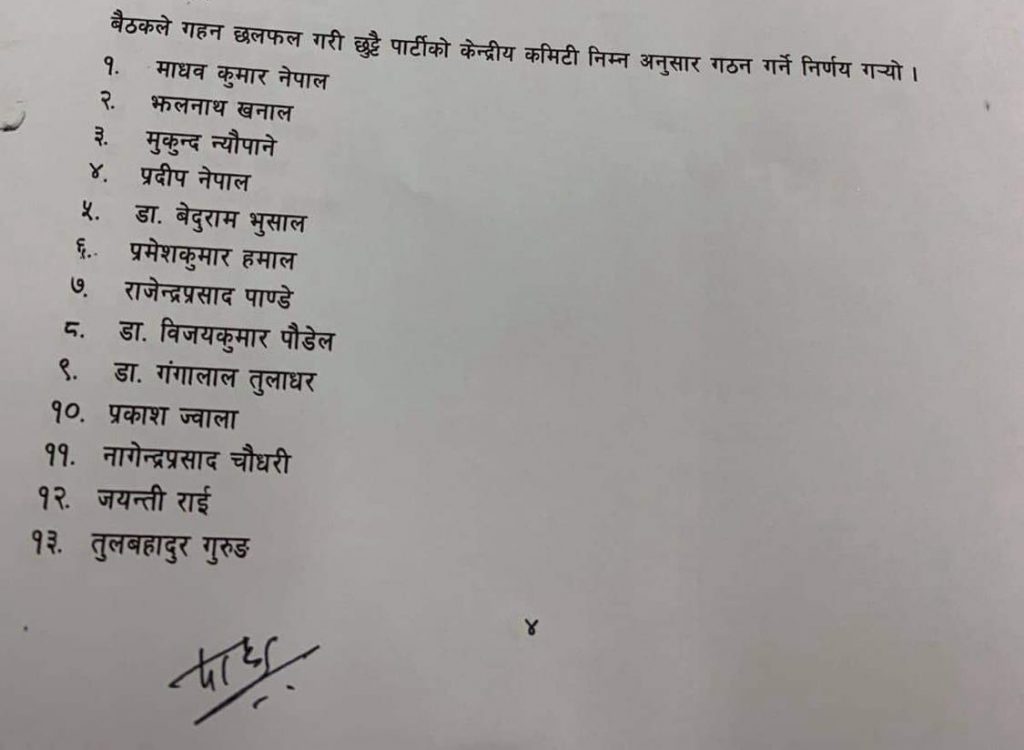 बैठकले गहन छलफल गरी छुट्टै पार्टीको केन्द्रीय कमिटी निम्न अनुसार गठन गर्ने निर्णय गऱ्यो ।
१. माधव कुमार नेपाल
२. झलनाथ खनाल
३. मुकुन्द न्यौपाने
४. प्रदीप नेपाल
५. डा. बेदुराम भुसाल
६. प्रमेशकुमार हमाल
७. राजेन्द्रप्रसाद पाण्डे
८. डा. विजयकुमार पौडेल
९. डा. गंगालाल तुलाधर
१०. प्रकाश ज्वाला
११. नागेन्द्रप्रसाद चौधरी
१२. जयन्ती राई
१३. तुलबहादुर गुरुङ
४